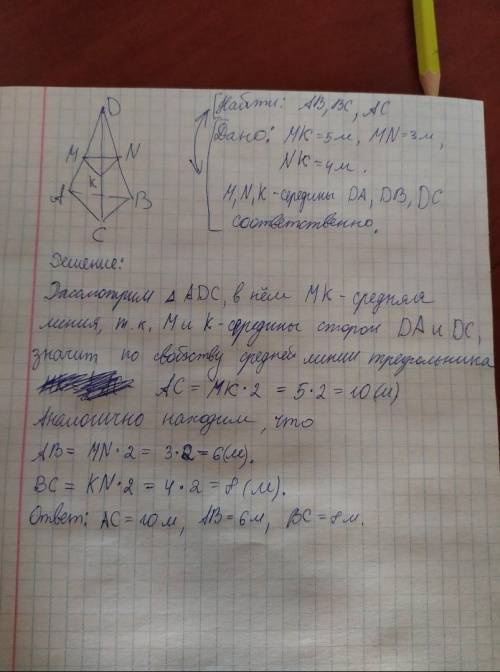 D
M N
K
A B
C
Найти: AB, BC, AC
Дано: MK=5м, MN=3м,
NK=4м.
M, N, K - середины DA, DB, DC
соответственно.
Решение:
Рассмотрим △ ADC, в нём MK - средняя
линия, т.к. M и K - середины сторон DA и DC,
значит по свойству средней линии треугольника
AC = MK · 2 = 5 · 2 = 10 (м)
Аналогично находим, что
AB = MN · 2 = 3 · 2 = 6(м).
BC = KN · 2 = 4 · 2 = 8 (м).
Ответ: AC = 10 м, AB = 6 м, BC = 8 м.